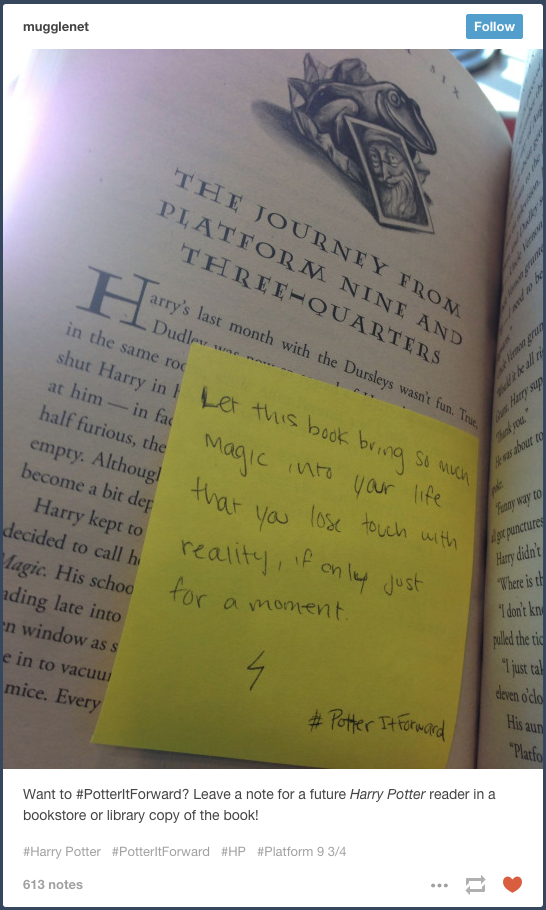 mugglenet
Follow
SIX
THE JOURNEY FROM
PLATFORM NINE AND
THREE-QUARTERS
Harry's last month with the Dursleys wasn't fun. True,
Dudley was now so
in the same roo
shut Harry in
at him — in fac
half furious, the
empty. Although
become a bit dep
Harry kept to
decided to call he
Magic. His schoo
ading late into
n window as s
e in to vacuu
mice. Every
Let this book bring so much
magic into your life
that you lose touch with
reality, if only just
for a moment.
# Potter ItForward
Vernon grun
ould it be all ri
Grunt. Harry sup
"Thank you."
He was about to
spoke.
"Funny way to
all got punctures
Harry didn't
"Where is th
"I don't kn
pulled the tic
"I just tak
eleven o'clo
His aun
"Platfo
Want to #PotterItForward? Leave a note for a future Harry Potter reader in a
bookstore or library copy of the book!
#Harry Potter #PotterItForward #HP #Platform 9 3/4
613 notes